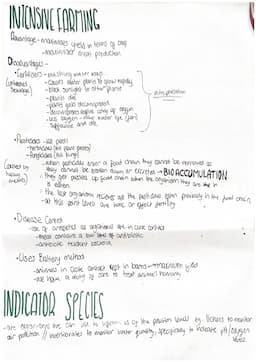 INTENSIVE FARMING
Advantage - maximises yield in terms of crop
- maximises meat production
Disadvantages -
• Fertilisers - washing water ways
- causes water plants to grow rapidly
- block sunlight to other plants
- plants die
- plants get decomposed
- decomposers use oxygen
- less oxygen - water life (fish)
suffocate and die.
• Pesticides - use pests
- herbicides (kill plant pests)
- Fungicides (kill fungi)
when pesticides enter a food chain they cannot be removed as
they cannot be broken down or excreted → BIOACCUMULATION
They get passed up food chain when the organism they are in
is eaten.
- the last organism receives all the pesticides eaten previously in the food chain
- at this point levels are toxic or effect fertility
• Disease Control
- use of antibiotics as conditions are in close contact
- meat contains a low level of antibiotic
- antibiotic resistant bacteria
• Uses Battery method
- animals in close contact kept in barns → maximum yield
- we have a duty of care to treat animals humanely
INDICATOR SPECIES
- are organisms we can use to inform us of the pollution levels eg. lichens to monitor
air pollution // invertebrates to monitor water quality, specifically to indicate pH/oxygen
levels